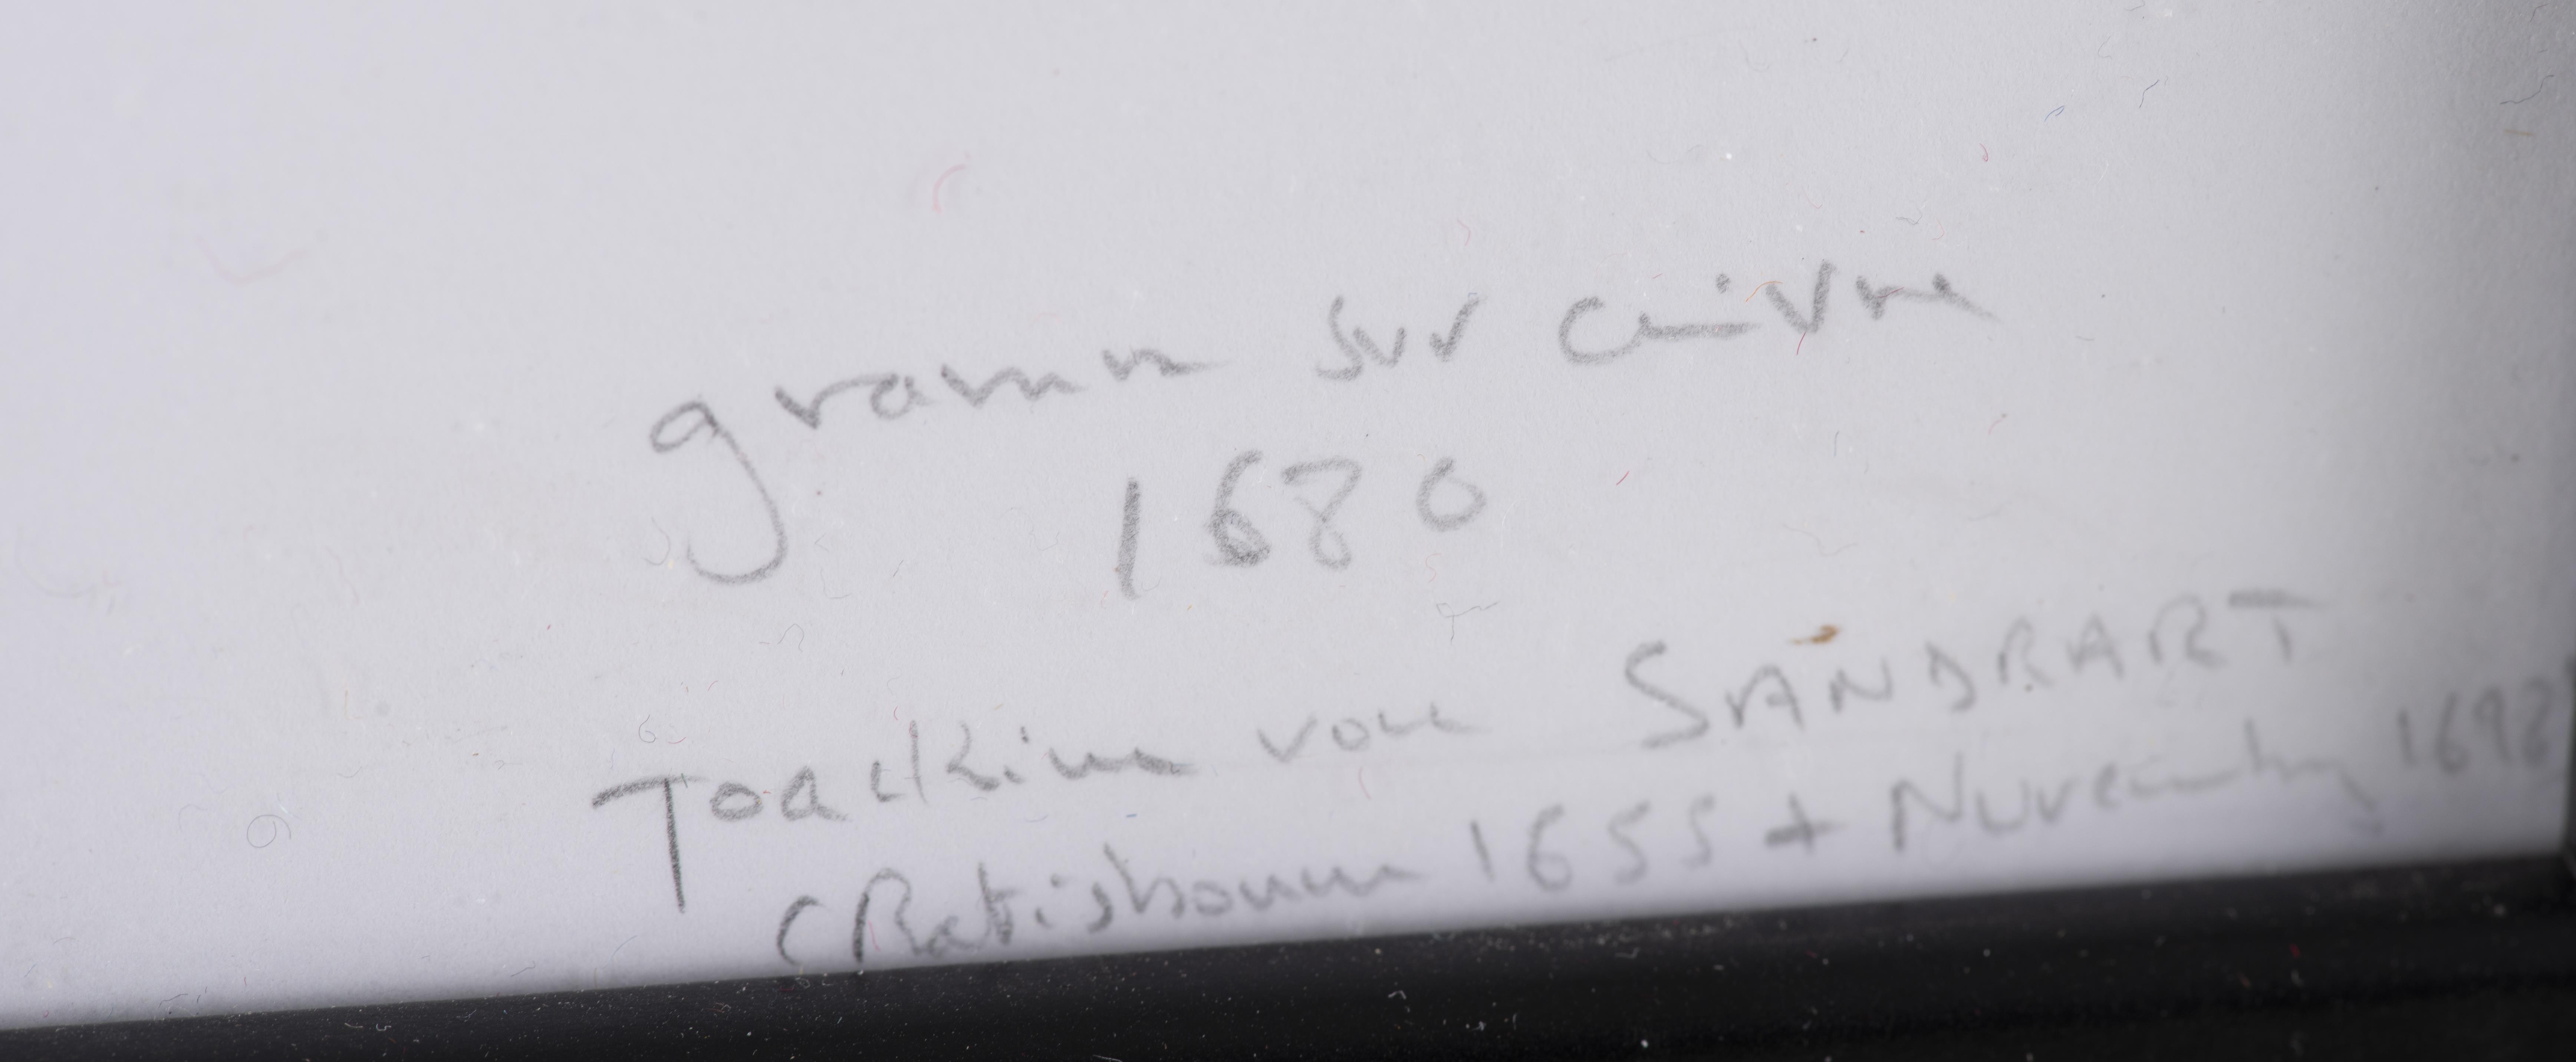 gravure sur cuivre
1680
Joachim von SANDRART
(Ratisbonne 1655 + Nuremberg 1698